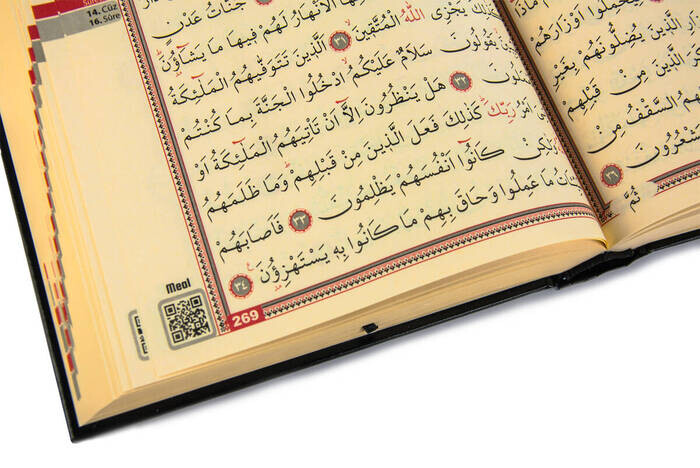 14. Cüz
16. Sûre
جَنَّاتُ عَدْنٍ
الْاَنْهَارُ لَهُمْ فِيهَا مَا يَشَٓاؤُ۫نَ
كَذٰلِكَ يَجْزِي اللّٰهُ الْمُتَّقِينَ ﴿٣١﴾ اَلَّذِينَ تَتَوَفّٰيهُمُ الْمَلٰٓئِكَةُ
يَقُولُونَ سَلَامٌ عَلَيْكُمْ ادْخُلُوا الْجَنَّةَ بِمَا كُنْتُمْ
﴿٣٢﴾ هَلْ يَنْظُرُونَ اِلَّٓا اَنْ تَأْتِيَهُمُ الْمَلٰٓئِكَةُ اَوْ
اَمْرُ رَبِّكَ كَذٰلِكَ فَعَلَ الَّذِينَ مِنْ قَبْلِهِمْ وَمَا ظَلَمَهُمُ
وَلٰكِنْ كَانُٓوا اَنْفُسَهُمْ يَظْلِمُونَ ﴿٣٣﴾ فَاَصَابَهُمْ
مَا عَمِلُوا وَحَاقَ بِهِمْ مَا كَانُوا بِهِ يَسْتَهْزِؤُ۫نَ ﴿٣٤﴾
Meal
269
لِيَحْمِلُٓوا اَوْزَارَهُمْ
الَّذِينَ يُضِلُّونَهُمْ بِغَيْرِ
الَّذِينَ مِنْ قَبْلِهِمْ
السَّقْفُ مِنْ
يَشْعُرُونَ ﴿٢٦﴾
ثُمَّ